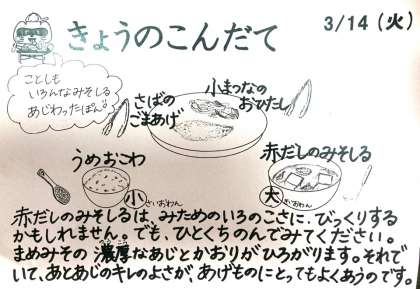 きょうのこんだて
3/14(火)
ことしも
いろんなみそしる
あじわったぽん。
さばの
ごまあげ
小まつなの
おひたし
うめおこわ
小
さいおわん
赤だしのみそしる
大
さいおわん
赤だしのみそしるは、みためのいろのこさに、びっくりする
かもしれません。でも、ひとくちのんでみてください。
まめみその濃厚なあじとかおりがひろがります。それで
いて、あとあじのキレのよさが、あげものにとってもよくあうのです。